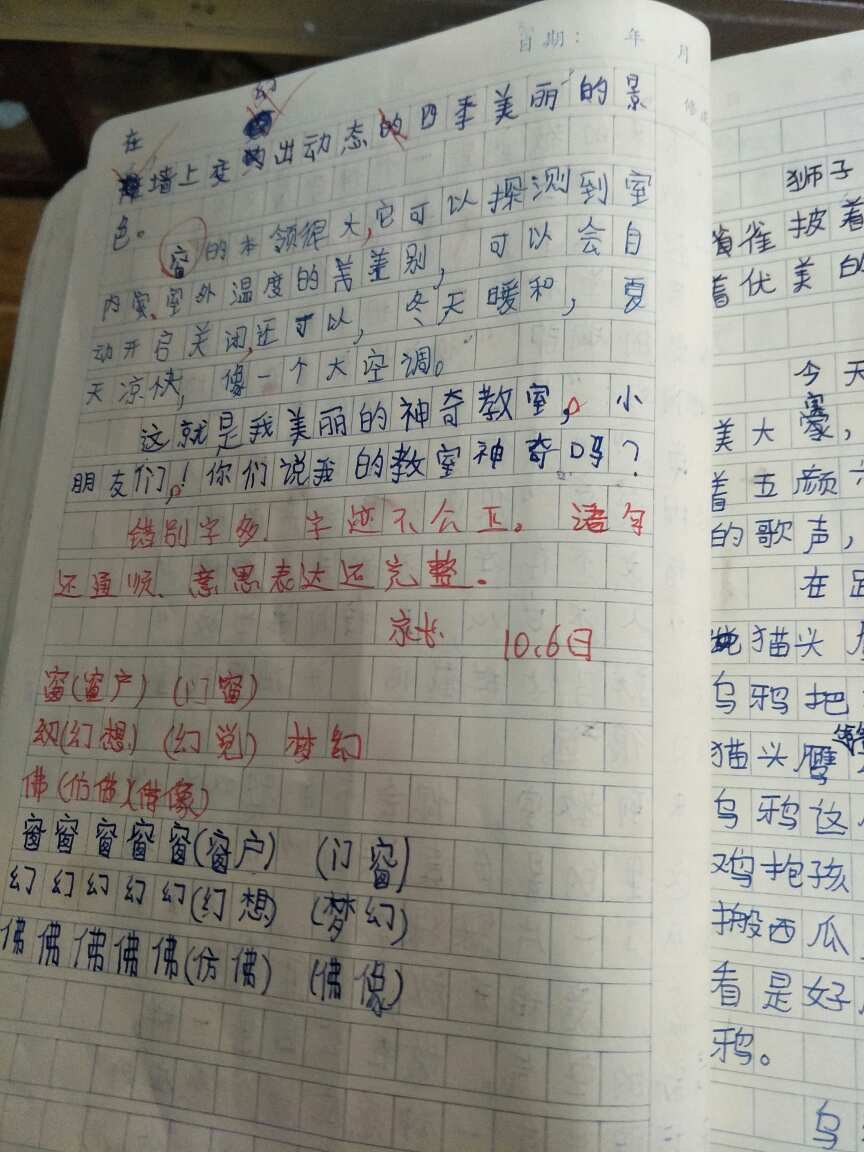 日期： 年 月
幻
在
墙上变出动态的四季美丽的景
色。
窗的本领很大,它可以探测到室
内室外温度的差别，可以会自
动开启关闭,还可以，冬天暖和，夏
天凉快，像一个大空调。
这就是我美丽的神奇教室。小
朋友们,！你们说我的教室神奇吗？
错别字多、字迹不公正。语句
还通顺、意思表达还完整。
家长 10.6日
窗(窗户) (门窗)
幻(幻想) (幻觉) 梦幻
佛(仿佛)(佛像)
窗窗窗窗窗(窗户) (门窗)
幻幻幻幻幻(幻想) (梦幻)
佛佛佛佛佛(仿佛) (佛像)
狮子
雀披着
着优美的
今天
美大
着五颜六
的歌声，
在
猫头
乌鸦把
猫头鹰
乌鸦这
鸡抱孩
搬西瓜
看是好
鸦。
乌